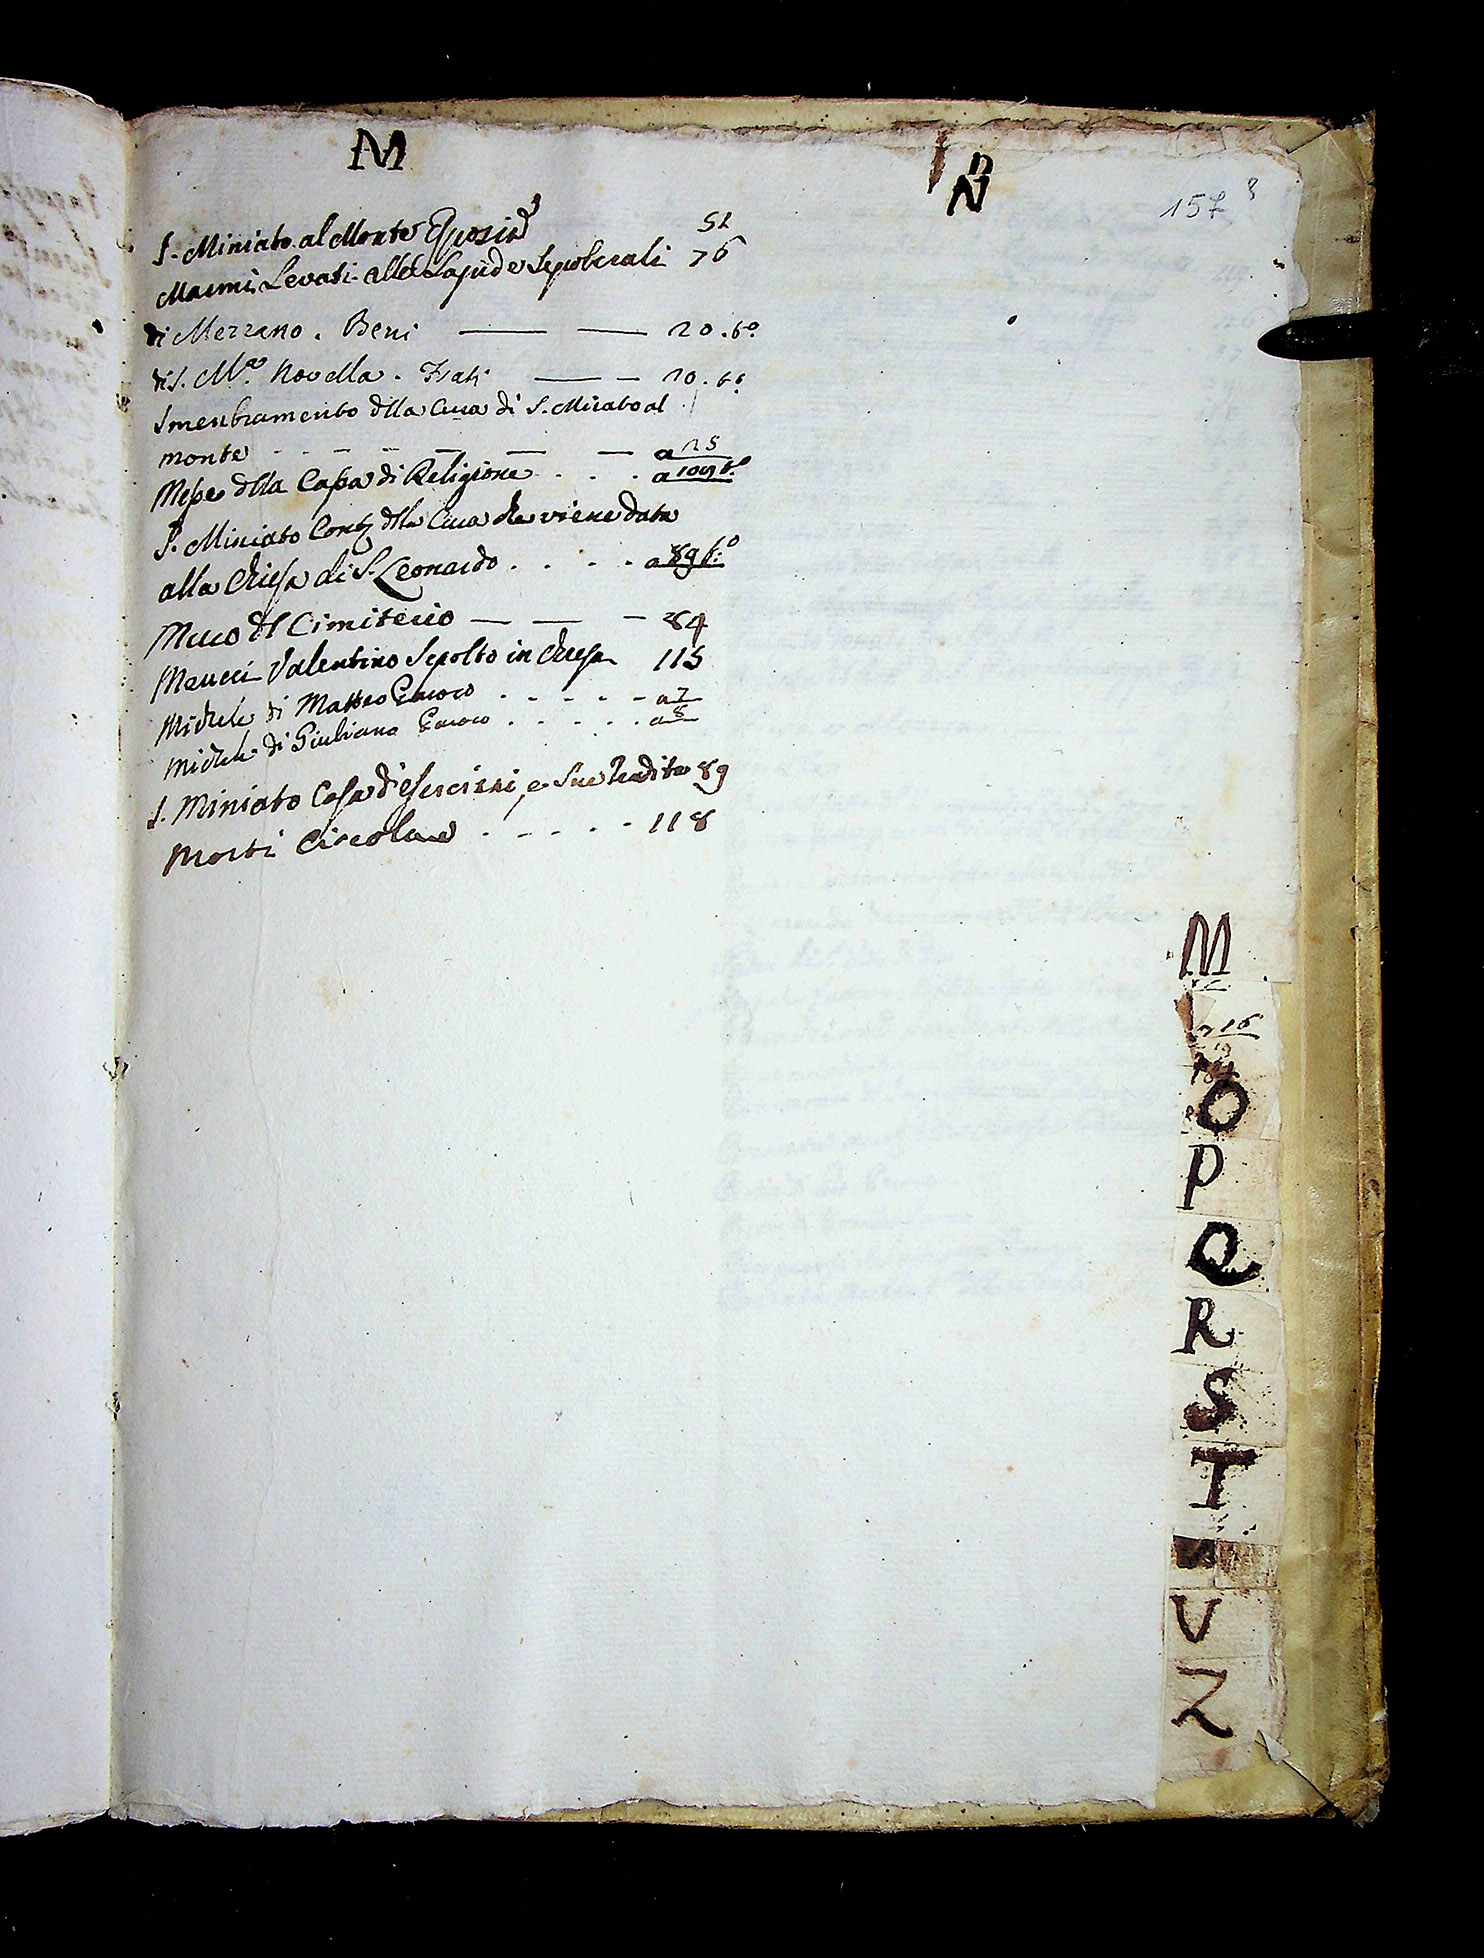 M
n
N
157 8
S. Miniato al Monte 51
Marmi Levati alle Lapide Sepolcrali 76
di Mezzano. Beni 20. to
di S. Ma. Novella. Frati 20. to
Smembramento dlla Cura di S. Miniato al
monte a 25
Messe dlla Cassa di Religione a 109 to
S. Miniato dlla Cura che viene data
alla Chiesa di S. Leonardo a 89 to
Muro dl Cimiterio 84
Meucci Valentino Sepolto in Chiesa 115
Michele di Matteo a 7
Michele di Giuliano a 8
S. Miniato Casa d'Esercizzi, e Sue Rendite 89
Morti Circolare 118
M
16
O
P
Q
R
S
T
V
Z